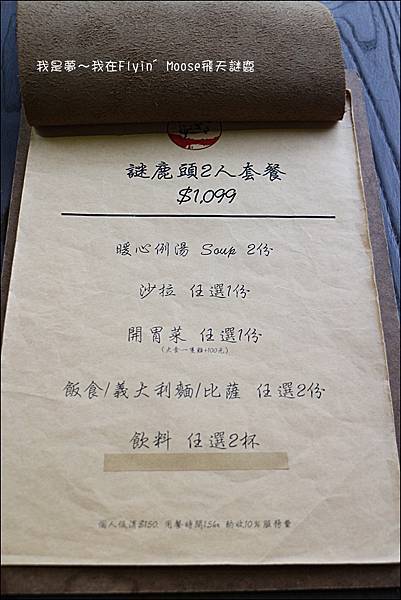 我是夢～我在Flyin' Moose飛天謎鹿
謎鹿頭2人套餐
$1,099
暖心例湯 Soup 2份
沙拉 任選1份
開胃菜 任選1份
飯食/義大利麵/比薩 任選2份
飲料 任選2杯
個人低消$150. 用餐時間1.5hr 酌收10%服務費